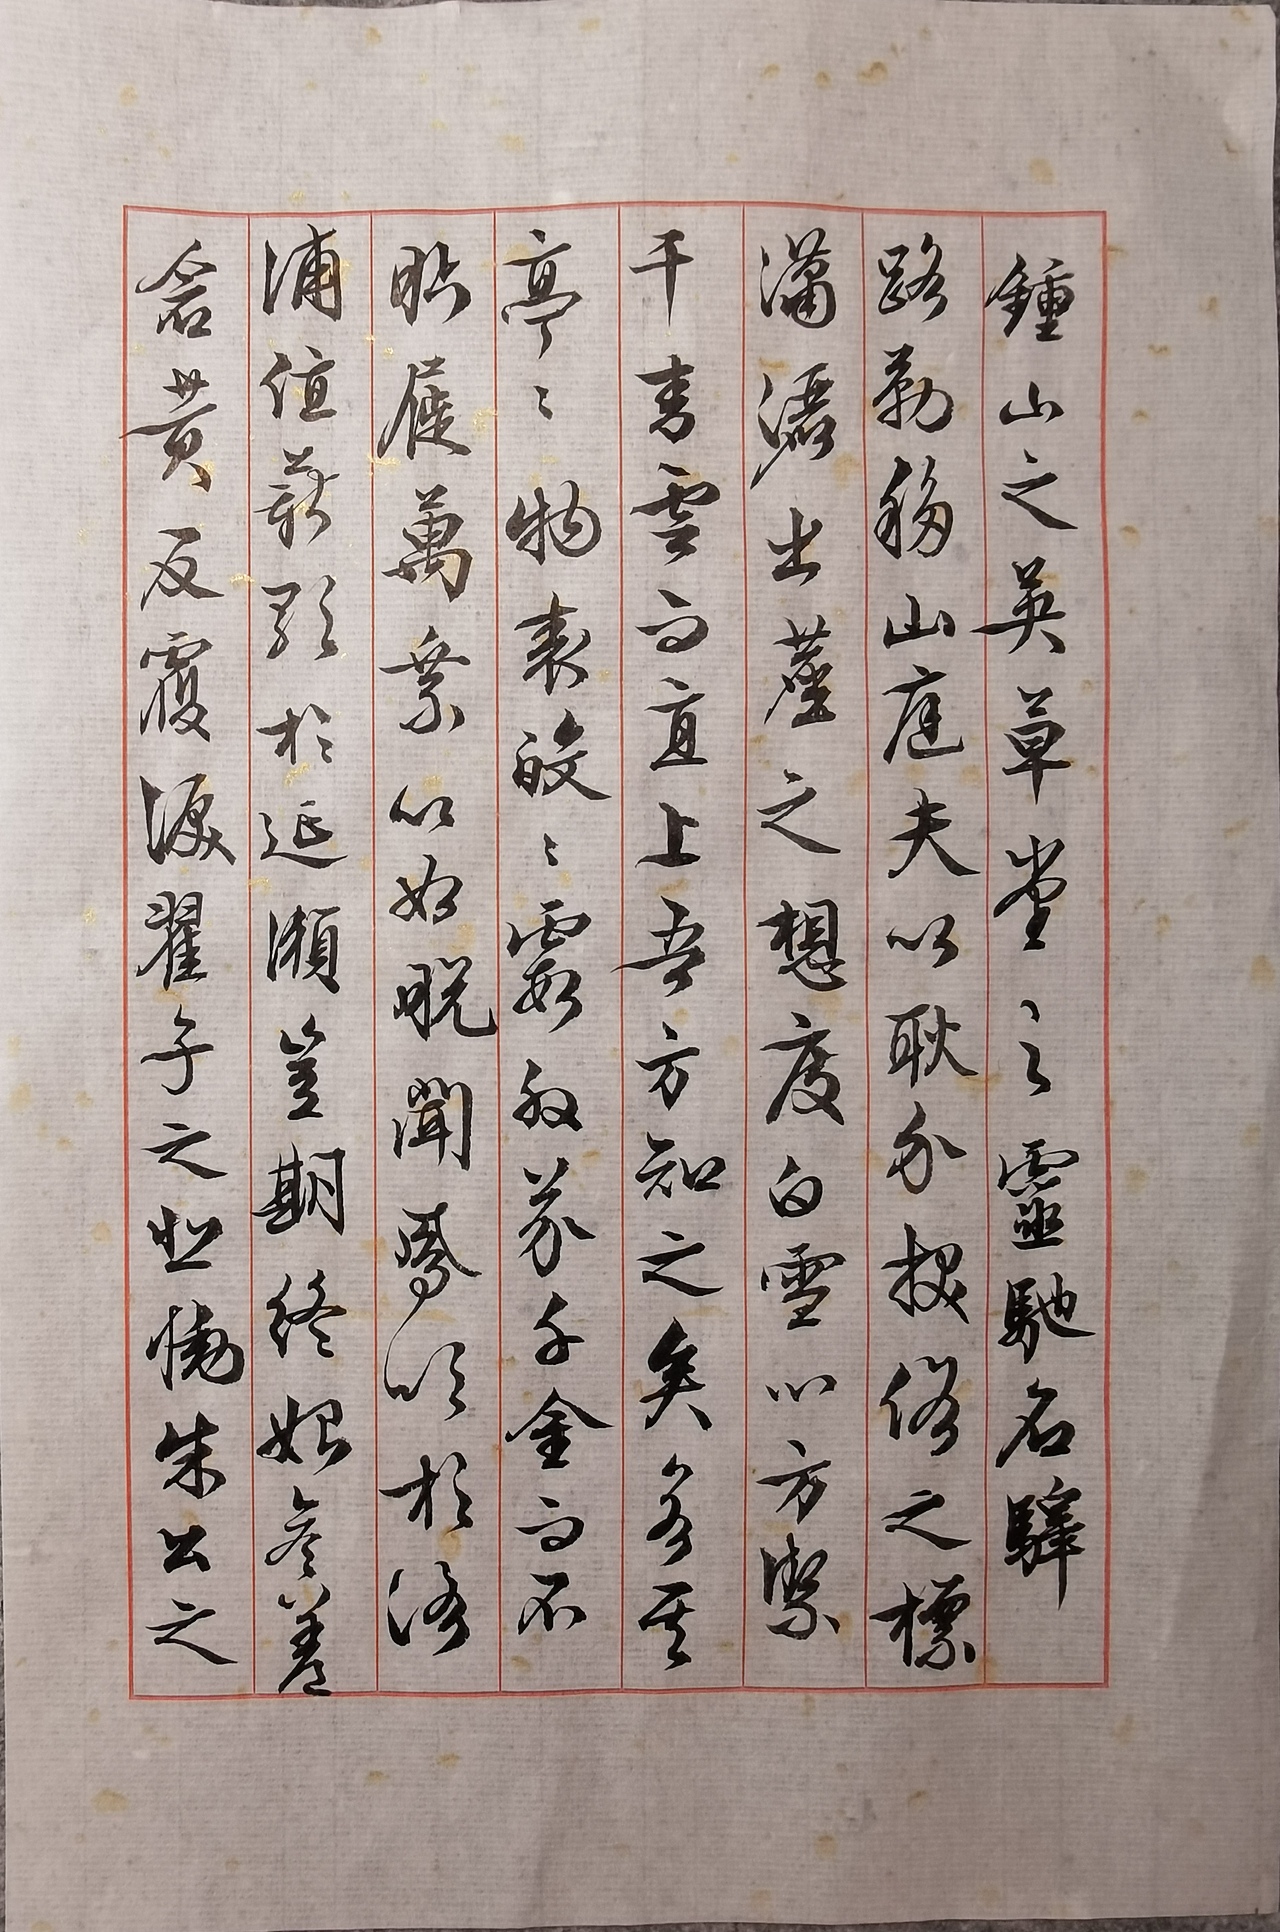 鍾山之英草堂之靈馳名驛
路勒移山庭夫以耿介拔俗之標
瀟灑出塵之想度白雪以方絜
干青雲而直上吾方知之矣若其
亭〻物表皎〻霞外芥千金而不
眄屣萬乘以如脫聞鳳吹於洛
浦值薪歌於延瀨豈期終始參差
蒼黃反覆淚翟子之悲慟朱公之